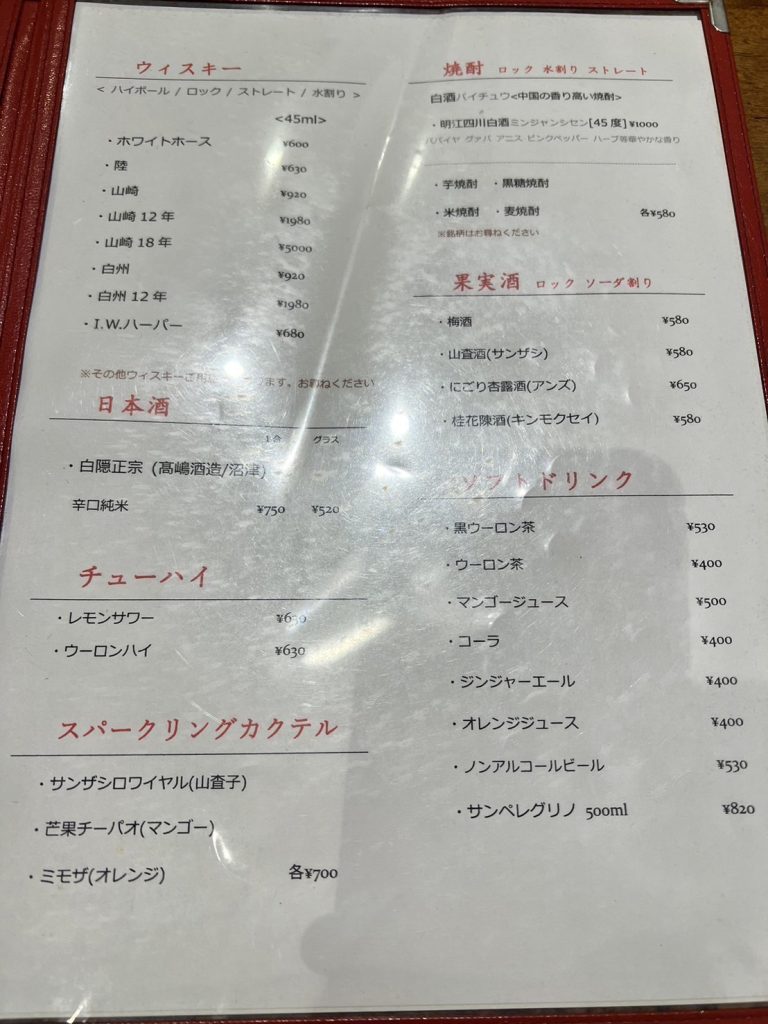 ウィスキー
< ハイボール / ロック / ストレート / 水割り >
<45ml>
・ホワイトホース ¥600
・陸 ¥630
・山崎 ¥920
・山崎 12 年 ¥1980
・山崎 18 年 ¥5000
・白州 ¥920
・白州 12 年 ¥1980
・I.W.ハーパー ¥680
※その他ウィスキーご用 ます。お尋ねください
日本酒
1合 グラス
・白隠正宗 (髙嶋酒造/沼津)
辛口純米 ¥750 ¥520
チューハイ
・レモンサワー ¥630
・ウーロンハイ ¥630
スパークリングカクテル
・サンザシロワイヤル(山査子)
・芒果チーパオ(マンゴー)
・ミモザ(オレンジ) 各¥700
焼酎 ロック 水割り ストレート
白酒バイチュウ<中国の香り高い焼酎>
・明江四川白酒ミンジャンシセン[45 度] ¥1000
パパイヤ グァバ アニス ピンクペッパー ハーブ等華やかな香り
・芋焼酎 ・黒糖焼酎
・米焼酎 ・麦焼酎 各¥580
※銘柄はお尋ねください
果実酒 ロック ソーダ割り
・梅酒 ¥580
・山査酒(サンザシ) ¥580
・にごり杏露酒(アンズ) ¥650
・桂花陳酒(キンモクセイ) ¥580
ソフトドリンク
・黒ウーロン茶 ¥530
・ウーロン茶 ¥400
・マンゴージュース ¥500
・コーラ ¥400
・ジンジャーエール ¥400
・オレンジジュース ¥400
・ノンアルコールビール ¥530
・サンペレグリノ 500ml ¥820